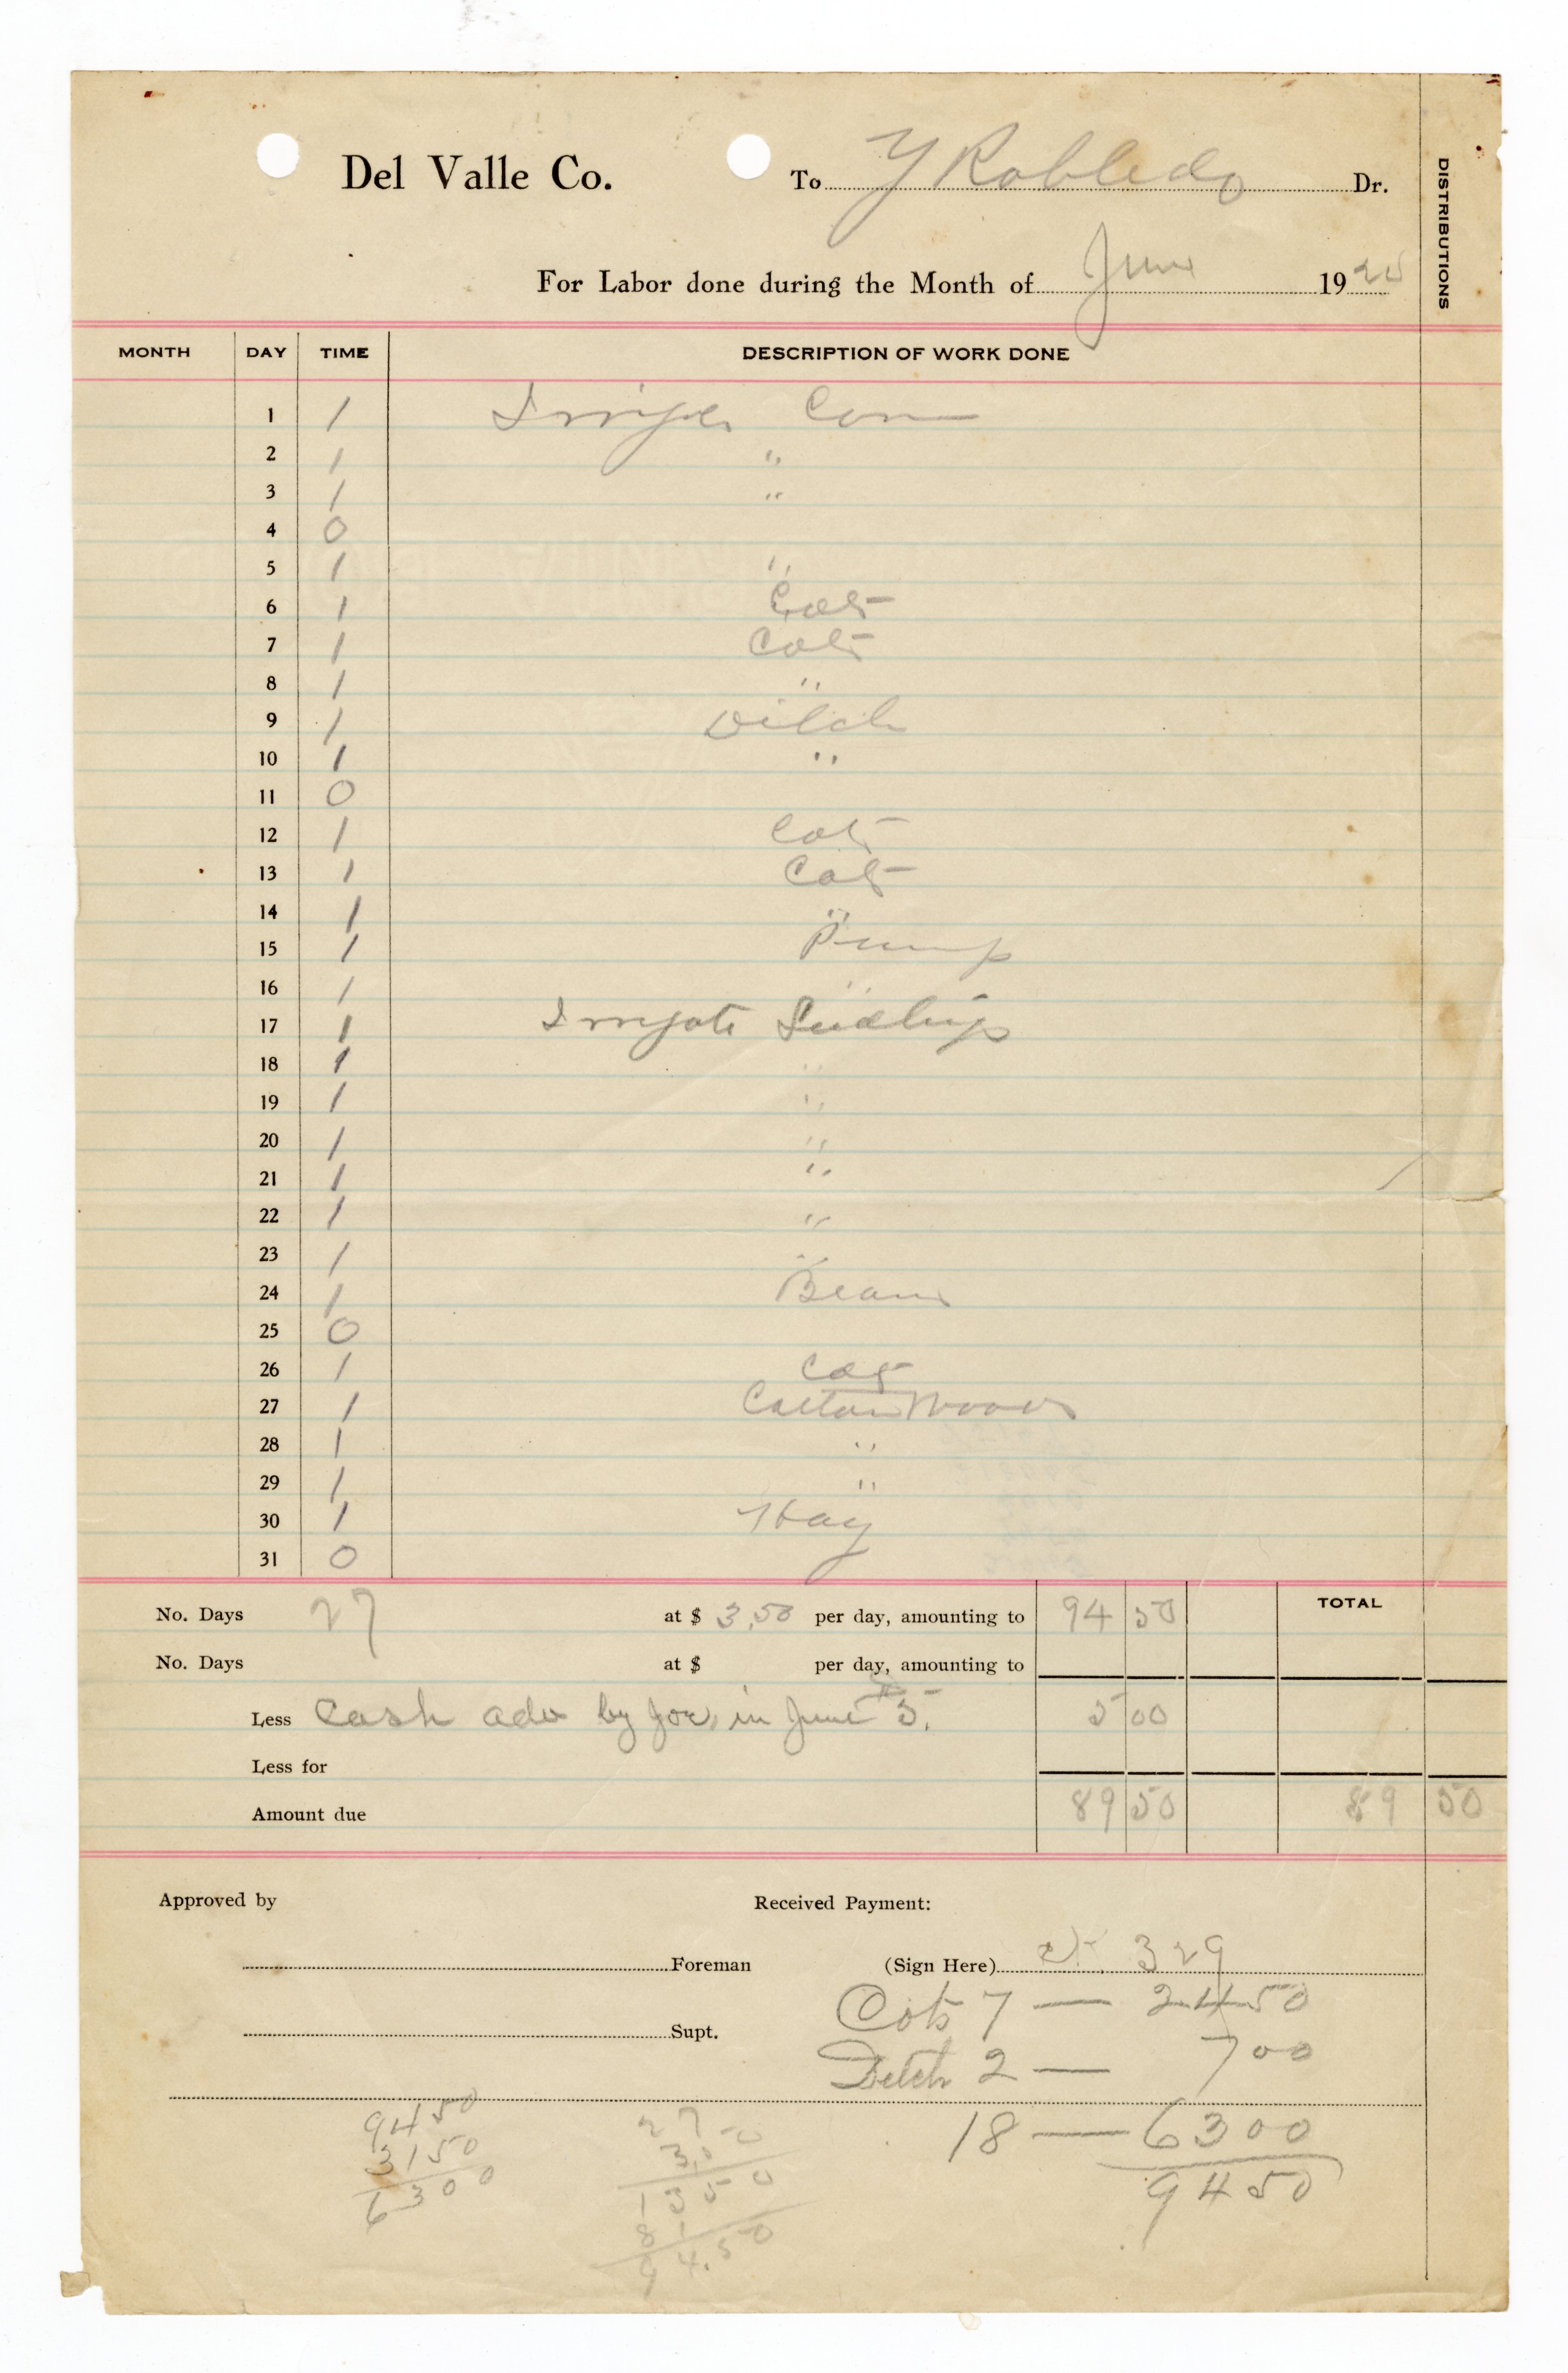 Del Valle Co. To Y Robledo Dr.
DISTRIBUTIONS
For Labor done during the Month of June 19
MONTH DAY TIME DESCRIPTION OF WORK DONE
1 1 Corn
2 1 "
3 1 "
4 0
5 1 "
6 1 Cot
7 1 Cot
8 1 "
9 1 Ditch
10 1 "
11 0
12 1 Cot
13 1 Cot
14 1 "
15 1 Pump
16 1 "
17 1 Irrigate Seedlings
18 1 "
19 1 "
20 1 "
21 1 "
22 1 "
23 1 "
24 1 Beans
25 0
26 1 Cot
27 1 Cotton Woods
28 1 "
29 1 "
30 1 Hay
31 0
No. Days 27 at $ 3.50 per day, amounting to 94 50 TOTAL
No. Days at $ per day, amounting to
Less Cash adv by Joe, in June 5. 5 00
Less for
Amount due 89 50 89 50
Approved by Received Payment:
Foreman (Sign Here) ck. 329
Cots 7 — 24 50
Supt.
Ditch 2 — 7 00
18 — 63 00
94 50
94 50
31 50
63 00
27
3.50
1350
81
94.50